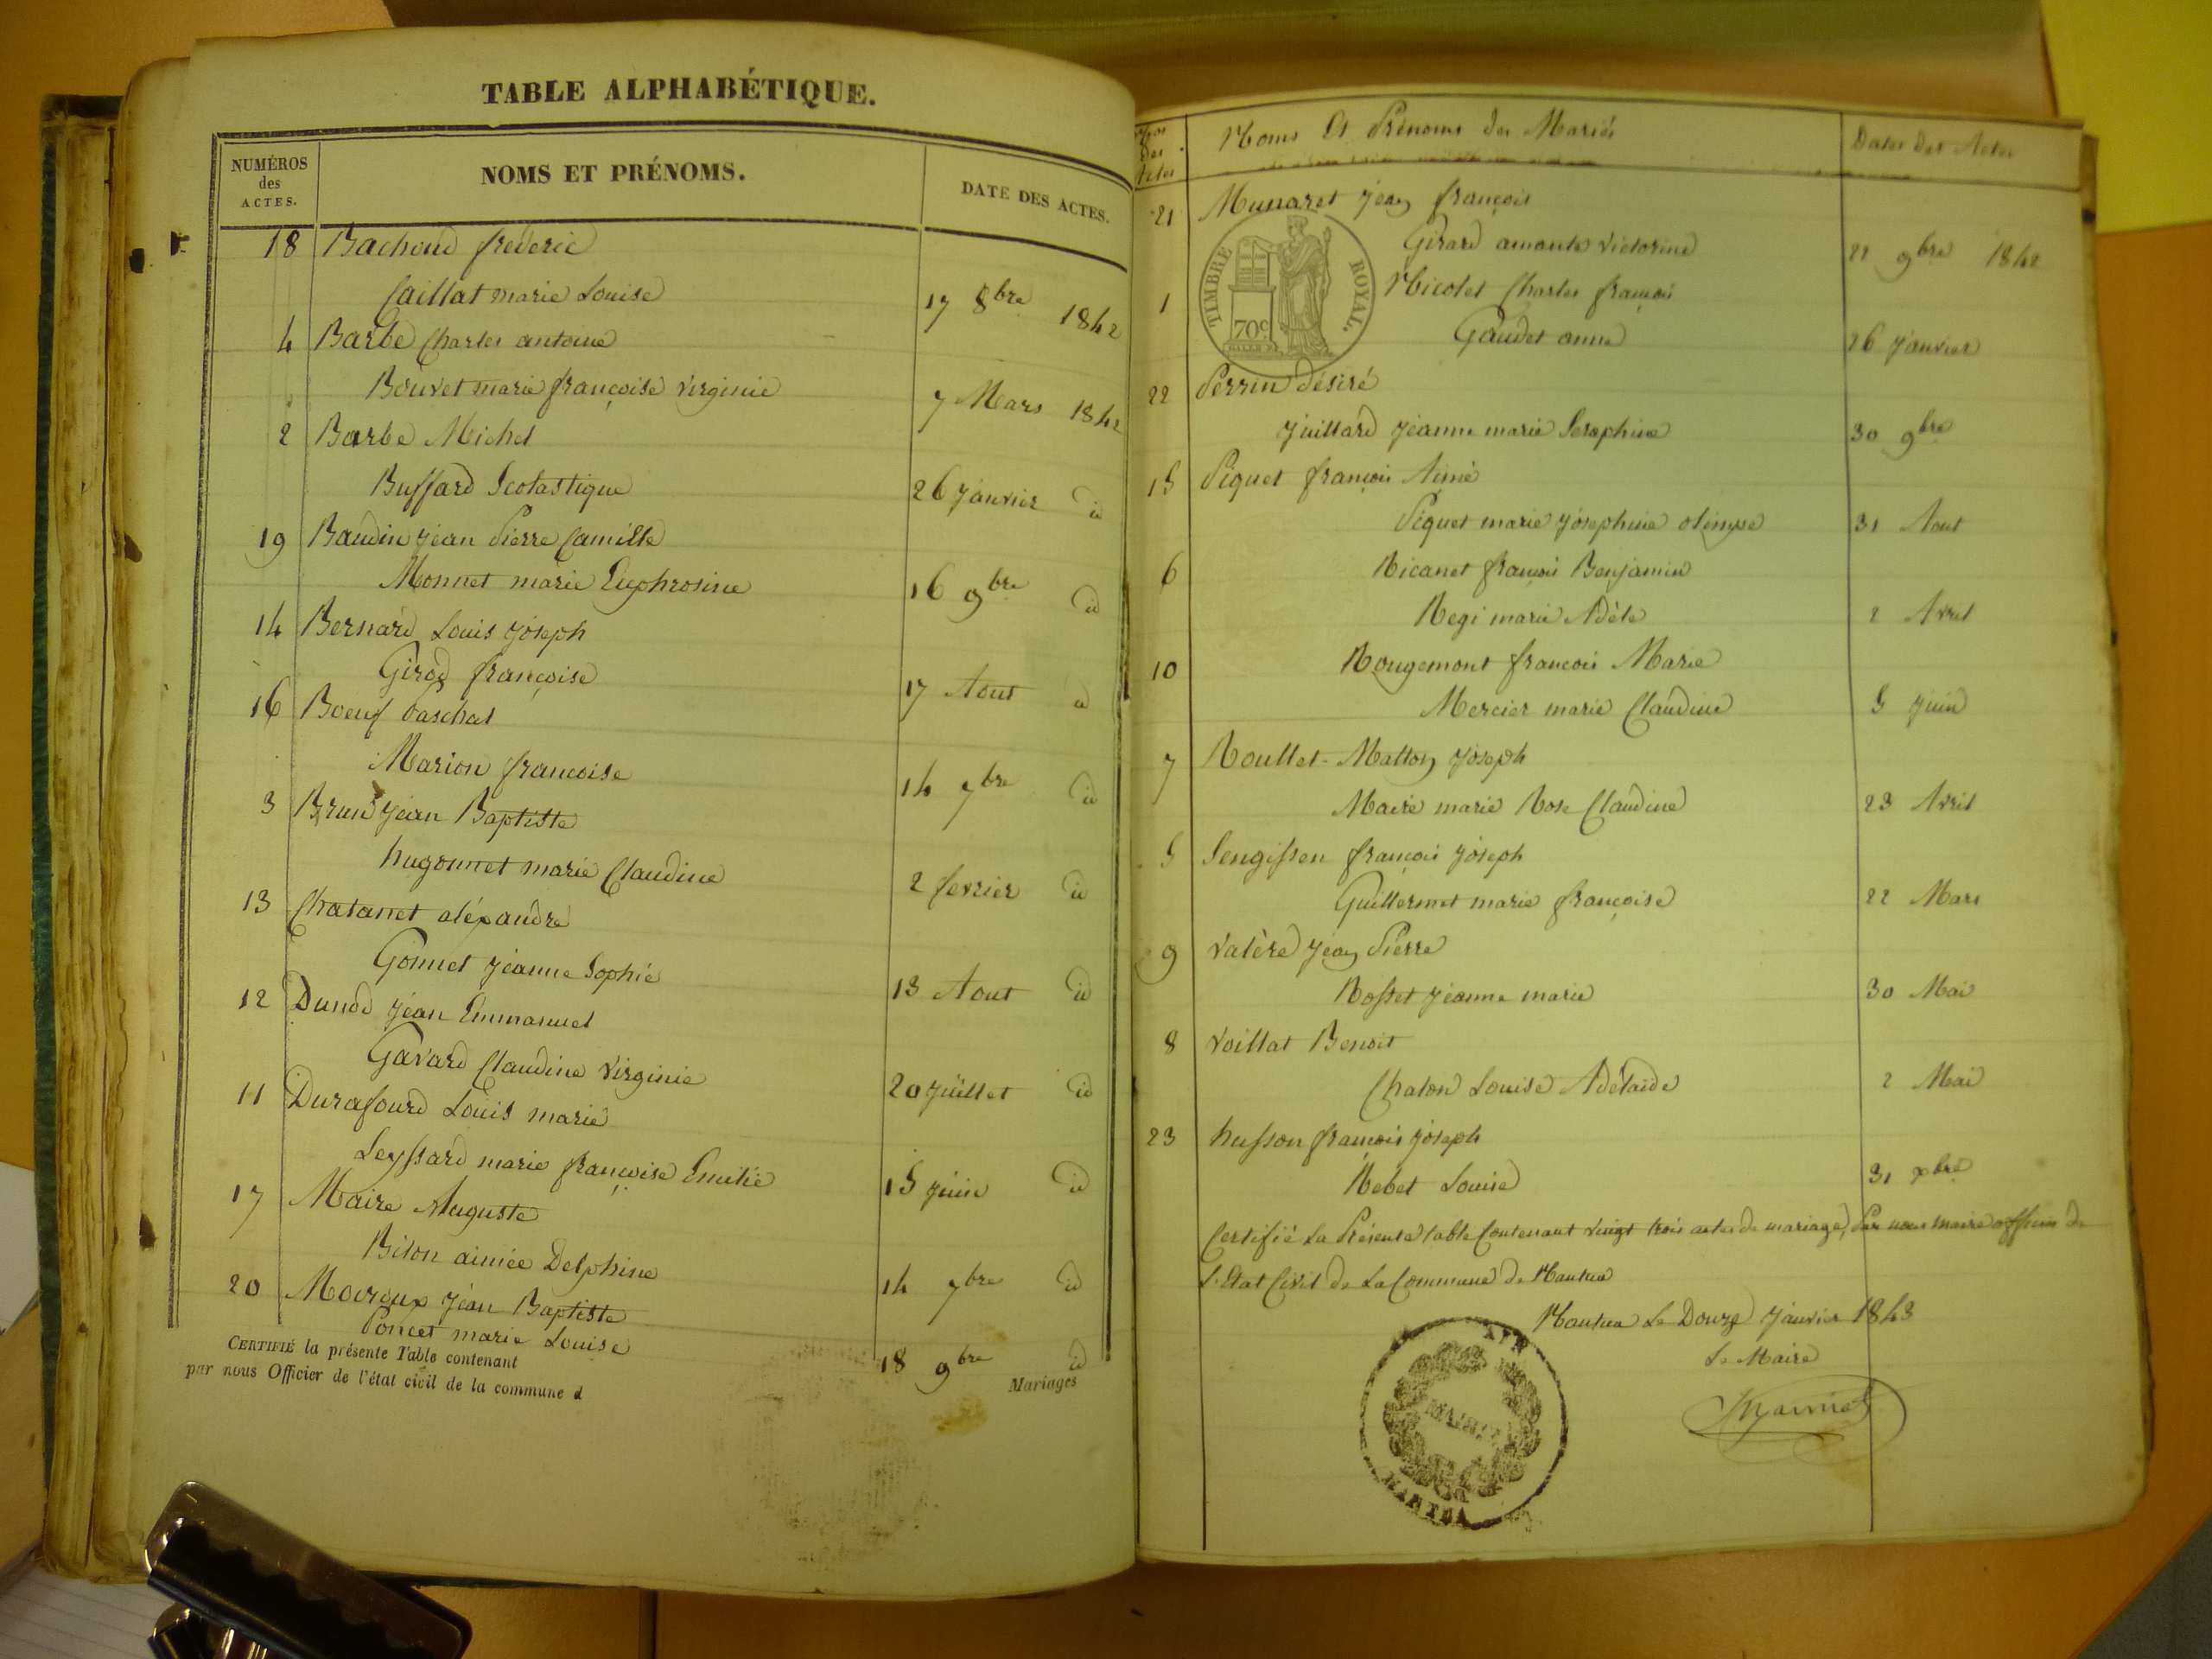 TABLE ALPHABÉTIQUE.
NUMÉROS des ACTES.
NOMS ET PRÉNOMS.
DATE DES ACTES.
18 Bachoud frederic
Caillat marie Louise 17 8bre 1842
4 Barbe Charles antoine
Bouvet marie françoise virginie 7 Mars 1842
2 Barbe Michel
Buffard Scolastique 26 janvier id
19 Baudin jean Pierre Camille
Monnet marie Euphrosine 16 9bre id
14 Bernard Louis joseph
Girod françoise 17 Aout id
16 Boeuf paschal
Marion francoise 14 7bre id
3 Brun jean Baptiste
hugonnet marie Claudine 2 fevrier id
13 Chatanet aléxandre
Gonnet jeanne Sophie 13 Aout id
12 Dunod jean Emmanuel
Gavard Claudine virginie 20 juillet id
11 Durafourd Louis marie
Leyssard marie françoise Emilie 15 juin id
17 Maire Auguste
Biton aimée Delphine 14 7bre id
20 Moiroux jean Baptiste
Poncet marie Louise 18 9bre id
CERTIFIÉ la présente Table contenant
Mariages
par nous Officier de l'état civil de la commune d
Nos des Actes
Noms Et Prénoms des Mariés
Dates des Actes
21 Munaret jean françois
Girard amante victorine 21 9bre 1842
TIMBRE ROYAL.
70c
1 Nicolet Charles françois
Gaudet anne 26 janvier
22 Perrin désiré
juillard jeanne marie Seraphine 30 9bre
15 Piquet françois Aimé
Piquet marie josephine olimpe 31 Aout
6 Ricanet françois Benjamin
Regi marie Adèle 2 Avril
10 Rougemont francois Marie
Mercier marie Claudine 5 juin
7 Roullet-Matton joseph
Maire marie Rose Claudine 23 Avril
5 Sengissen françois joseph
Guillermet marie françoise 22 Mars
9 valère jean Pierre
Rosset jeanne marie 30 Mai
8 voillat Benoit
Chaton Louise Adélaide 2 Mai
23 husson françois joseph
Rebet Louise 31 xbre
Certifié La Présente table Contenant vingt trois actes de mariage, Par nous maire officier de
L'Etat Civil de La Commune de Nantua
Nantua Le Douze janvier 1843
Le Maire
MAIRIE
NANTUA